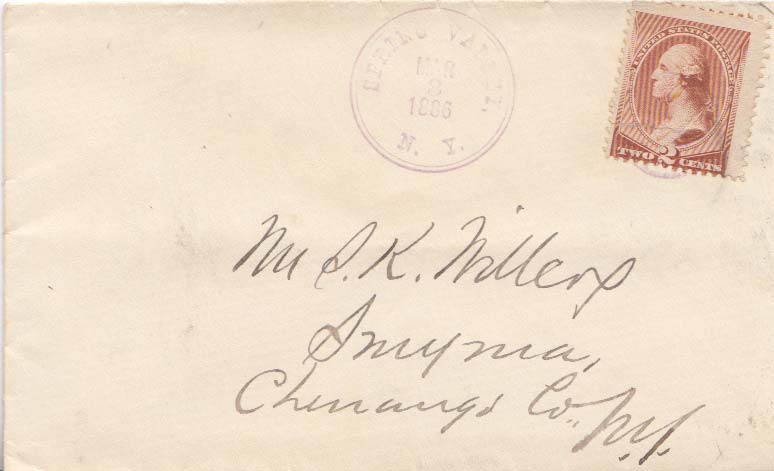 SPRING VALLEY,
MAR
8
1886
N. Y.
UNITED STATES POSTAGE
TWO 2 CENTS
Mr S. K. Willcox
Smyrna,
Chenango Co., N.Y.